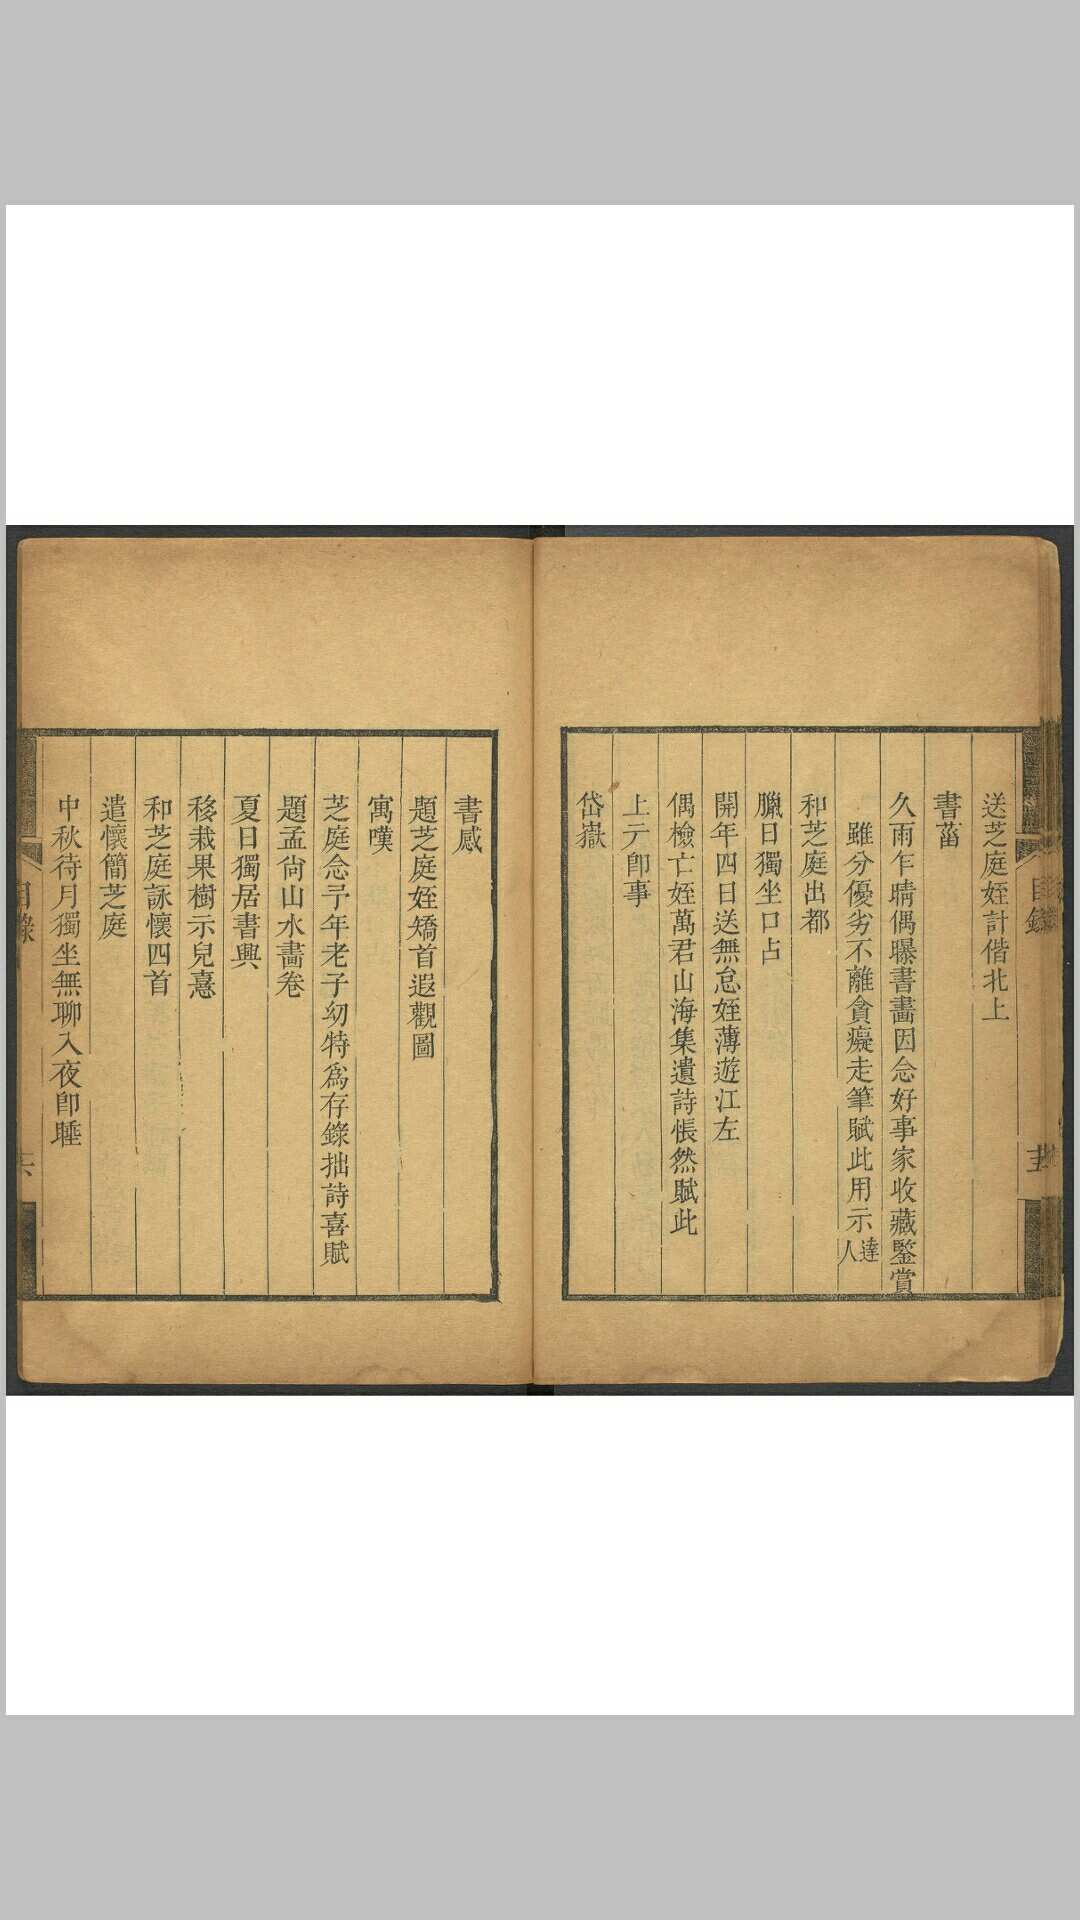 送芝庭姪計偕北上
書菑
久雨乍晴偶曝書畵因念好事家收藏鑒賞
雖分優劣不離貪癡走筆賦此用示達人
和芝庭出都
臘日獨坐口占
開年四日送無怠姪薄遊江左
偶檢亡姪萬君山海集遺詩悵然賦此
上元卽事
岱嶽
書感
題芝庭姪矯首遐觀圖
寓嘆
芝庭念予年老子幼特爲存錄拙詩喜賦
題孟尙山水畵卷
夏日獨居書興
移栽果樹示兒憙
和芝庭詠懷四首
遣懷簡芝庭
中秋待月獨坐無聊入夜卽睡
目錄